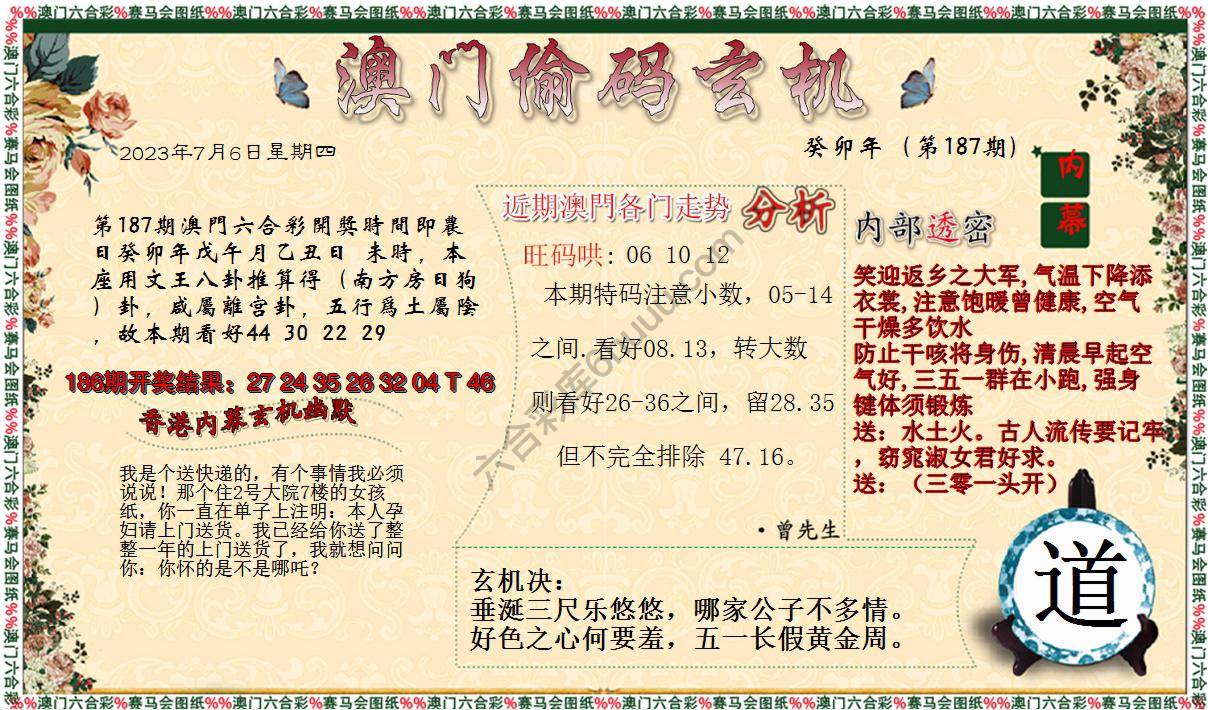 %%澳门六合彩%赛马会图纸%%澳门六合彩%赛马会图纸%%澳门六合彩%赛马会图纸%%澳门六合彩%赛马会图纸%%澳门六合彩%赛马会图纸%%澳门六合彩%赛马会图纸%%
澳门偷码玄机
2023年7月6日星期四
癸卯年（第187期）
内幕
第187期澳門六合彩開獎時間即農
日癸卯年戊午月乙丑日 未時，本
座用文王八卦推算得（南方房日狗
）卦，咸屬離宫卦，五行爲土屬陰
，故本期看好44 30 22 29
186期开奖结果：27 24 35 26 32 04 T 46
香港内幕玄机幽默
我是个送快递的，有个事情我必须
说说！那个住2号大院7楼的女孩
纸，你一直在单子上注明：本人孕
妇请上门送货。我已经给你送了整
整一年的上门送货了，我就想问问
你：你怀的是不是哪吒？
近期澳門各门走势 分析
旺码哄: 06 10 12
本期特码注意小数，05-14
之间.看好08.13，转大数
则看好26-36之间，留28.35
但不完全排除 47.16。
·曾先生
内部透密
笑迎返乡之大军,气温下降添
衣裳,注意饱暖曾健康,空气
干燥多饮水
防止干咳将身伤,清晨早起空
气好,三五一群在小跑,强身
键体须锻炼
送：水土火。古人流传要记牢
，窈窕淑女君好求。
送：（三零一头开）
玄机决：
垂涎三尺乐悠悠，哪家公子不多情。
好色之心何要羞，五一长假黄金周。
道
%%澳门六合彩%赛马会图纸%%澳门六合彩%赛马会图纸%%澳门六合彩%赛马会图纸%%澳门六合彩%赛马会图纸%%澳门六合彩%赛马会图纸%%澳门六合彩%赛马会图纸%%